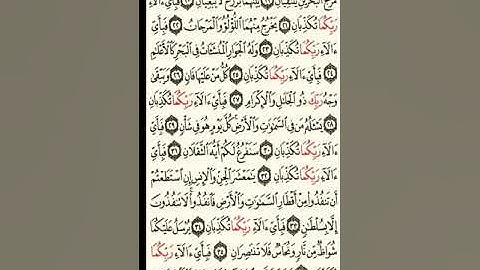 مَرَجَ الْبَحْرَيْنِ يَلْتَقِيَانِ ۝١٩ بَيْنَهُمَا بَرْزَخٌ لَّا يَبْغِيَانِ ۝٢٠ فَبِأَيِّ
ءَالَآءِ رَبِّكُمَا تُكَذِّبَانِ ۝٢١ يَخْرُجُ مِنْهُمَا اللُّؤْلُؤُ وَالْمَرْجَانُ ۝٢٢ فَبِأَيِّ
ءَالَآءِ رَبِّكُمَا تُكَذِّبَانِ ۝٢٣ وَلَهُ الْجَوَارِ الْمُنشَـَٔاتُ فِي الْبَحْرِ كَالْأَعْلَٰمِ
۝٢٤ فَبِأَيِّ ءَالَآءِ رَبِّكُمَا تُكَذِّبَانِ ۝٢٥ كُلُّ مَنْ عَلَيْهَا فَانٍ ۝٢٦ وَيَبْقَىٰ
وَجْهُ رَبِّكَ ذُو الْجَلَٰلِ وَالْإِكْرَامِ ۝٢٧ فَبِأَيِّ ءَالَآءِ رَبِّكُمَا تُكَذِّبَانِ
۝٢٨ يَسْـَٔلُهُ مَن فِي السَّمَٰوَٰتِ وَالْأَرْضِ كُلَّ يَوْمٍ هُوَ فِي شَأْنٍ ۝٢٩ فَبِأَيِّ
ءَالَآءِ رَبِّكُمَا تُكَذِّبَانِ ۝٣٠ سَنَفْرُغُ لَكُمْ أَيُّهَ الثَّقَلَانِ ۝٣١ فَبِأَيِّ
ءَالَآءِ رَبِّكُمَا تُكَذِّبَانِ ۝٣٢ يَٰمَعْشَرَ الْجِنِّ وَالْإِنسِ إِنِ اسْتَطَعْتُمْ
أَن تَنفُذُوا مِنْ أَقْطَارِ السَّمَٰوَٰتِ وَالْأَرْضِ فَانفُذُوا لَا تَنفُذُونَ
إِلَّا بِسُلْطَٰنٍ ۝٣٣ فَبِأَيِّ ءَالَآءِ رَبِّكُمَا تُكَذِّبَانِ ۝٣٤ يُرْسَلُ عَلَيْكُمَا
شُوَاظٌ مِّن نَّارٍ وَنُحَاسٌ فَلَا تَنتَصِرَانِ ۝٣٥ فَبِأَيِّ ءَالَآءِ رَبِّكُمَا